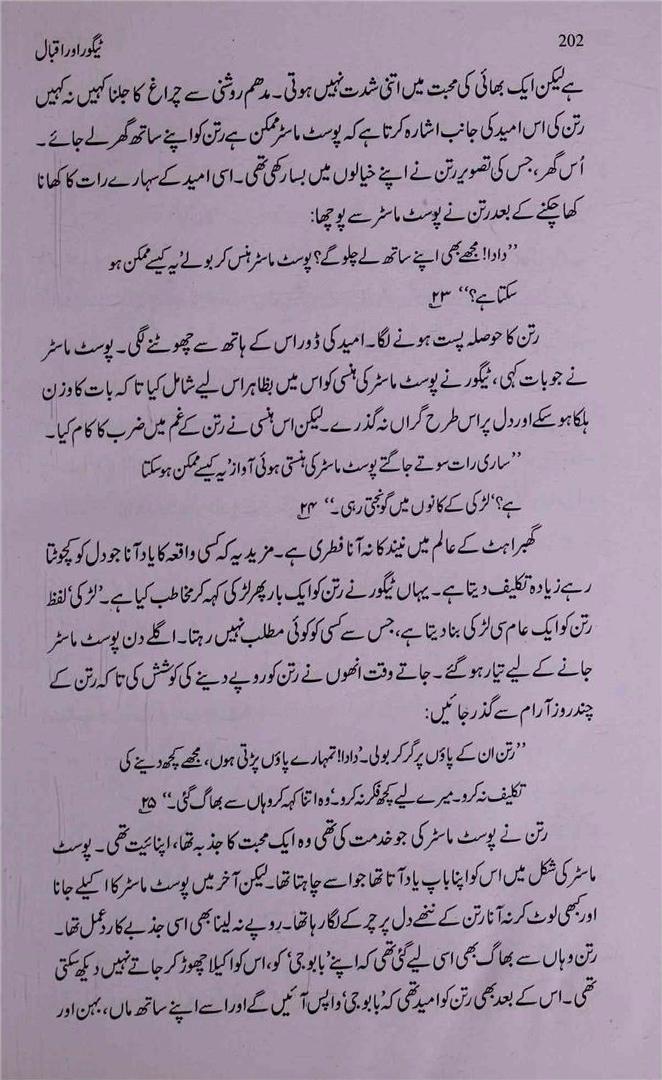 202
ٹیگور اور اقبال
ہے لیکن ایک بھائی کی محبت میں اتنی شدت نہیں ہوتی۔ مدھم روشنی سے چراغ کا جلنا کہیں نہ کہیں
رتن کی اس امید کی جانب اشارہ کرتا ہے کہ پوسٹ ماسٹر ممکن ہے رتن کو اپنے ساتھ گھر لے جائے۔
اُس گھر، جس کی تصویر رتن نے اپنے خیالوں میں بسا رکھی تھی۔ اسی امید کے سہارے رات کا کھانا
کھا چکنے کے بعد رتن نے پوسٹ ماسٹر سے پوچھا:
’’دادا! مجھے بھی اپنے ساتھ لے چلو گے؟ پوسٹ ماسٹر ہنس کر بولے ’یہ کیسے ممکن ہو
سکتا ہے؟‘‘ ۲۳
رتن کا حوصلہ پست ہونے لگا۔ امید کی ڈور اس کے ہاتھ سے چھوٹنے لگی۔ پوسٹ ماسٹر
نے جو بات کہی، ٹیگور نے پوسٹ ماسٹر کی ہنسی کو اس میں بظاہر اس لیے شامل کیا تا کہ بات کا وزن
ہلکا ہو سکے اور دل پر اس طرح گراں نہ گذرے۔ لیکن اس ہنسی نے رتن کے غم میں ضرب کا کام کیا۔
’’ساری رات سوتے جاگتے پوسٹ ماسٹر کی ہنستی ہوئی آواز ’یہ کیسے ممکن ہو سکتا
ہے؟‘ لڑکی کے کانوں میں گونجتی رہی۔‘‘ ۲۴
گھبراہٹ کے عالم میں نیند کا نہ آنا فطری ہے۔ مزید یہ کہ کسی واقعہ کا یاد آنا جو دل کو کچوٹتا
رہے زیادہ تکلیف دیتا ہے۔ یہاں ٹیگور نے رتن کو ایک بار پھر لڑکی کہہ کر مخاطب کیا ہے۔ ’لڑکی‘ لفظ
رتن کو ایک عام سی لڑکی بنا دیتا ہے، جس سے کسی کو کوئی مطلب نہیں رہتا۔ اگلے دن پوسٹ ماسٹر
جانے کے لیے تیار ہو گئے۔ جاتے وقت انھوں نے رتن کو روپے دینے کی کوشش کی تا کہ رتن کے
چند روز آرام سے گذر جائیں:
’’رتن ان کے پاؤں پر گر کر بولی۔ ’دادا! تمہارے پاؤں پڑتی ہوں، مجھے کچھ دینے کی
تکلیف نہ کرو۔ میرے لیے کچھ فکر نہ کرو۔‘ وہ اتنا کہہ کر وہاں سے بھاگ گئی۔‘‘ ۲۵
رتن نے پوسٹ ماسٹر کی جو خدمت کی تھی وہ ایک محبت کا جذبہ تھا، اپنائیت تھی۔ پوسٹ
ماسٹر کی شکل میں اس کو اپنا باپ یاد آتا تھا جو اسے چاہتا تھا۔ لیکن آخر میں پوسٹ ماسٹر کا اکیلے جانا
اور کبھی لوٹ کر نہ آنا رتن کے ننھے دل پر چرکے لگا رہا تھا۔ روپے نہ لینا بھی اسی جذبے کا ردعمل تھا۔
رتن وہاں سے بھاگ بھی اسی لیے گئی تھی کہ اپنے ’بابوجی‘ کو، اس کو اکیلا چھوڑ کر جاتے نہیں دیکھ سکتی
تھی۔ اس کے بعد بھی رتن کو امید تھی کہ ’بابوجی‘ واپس آئیں گے اور اسے اپنے ساتھ ماں، بہن اور